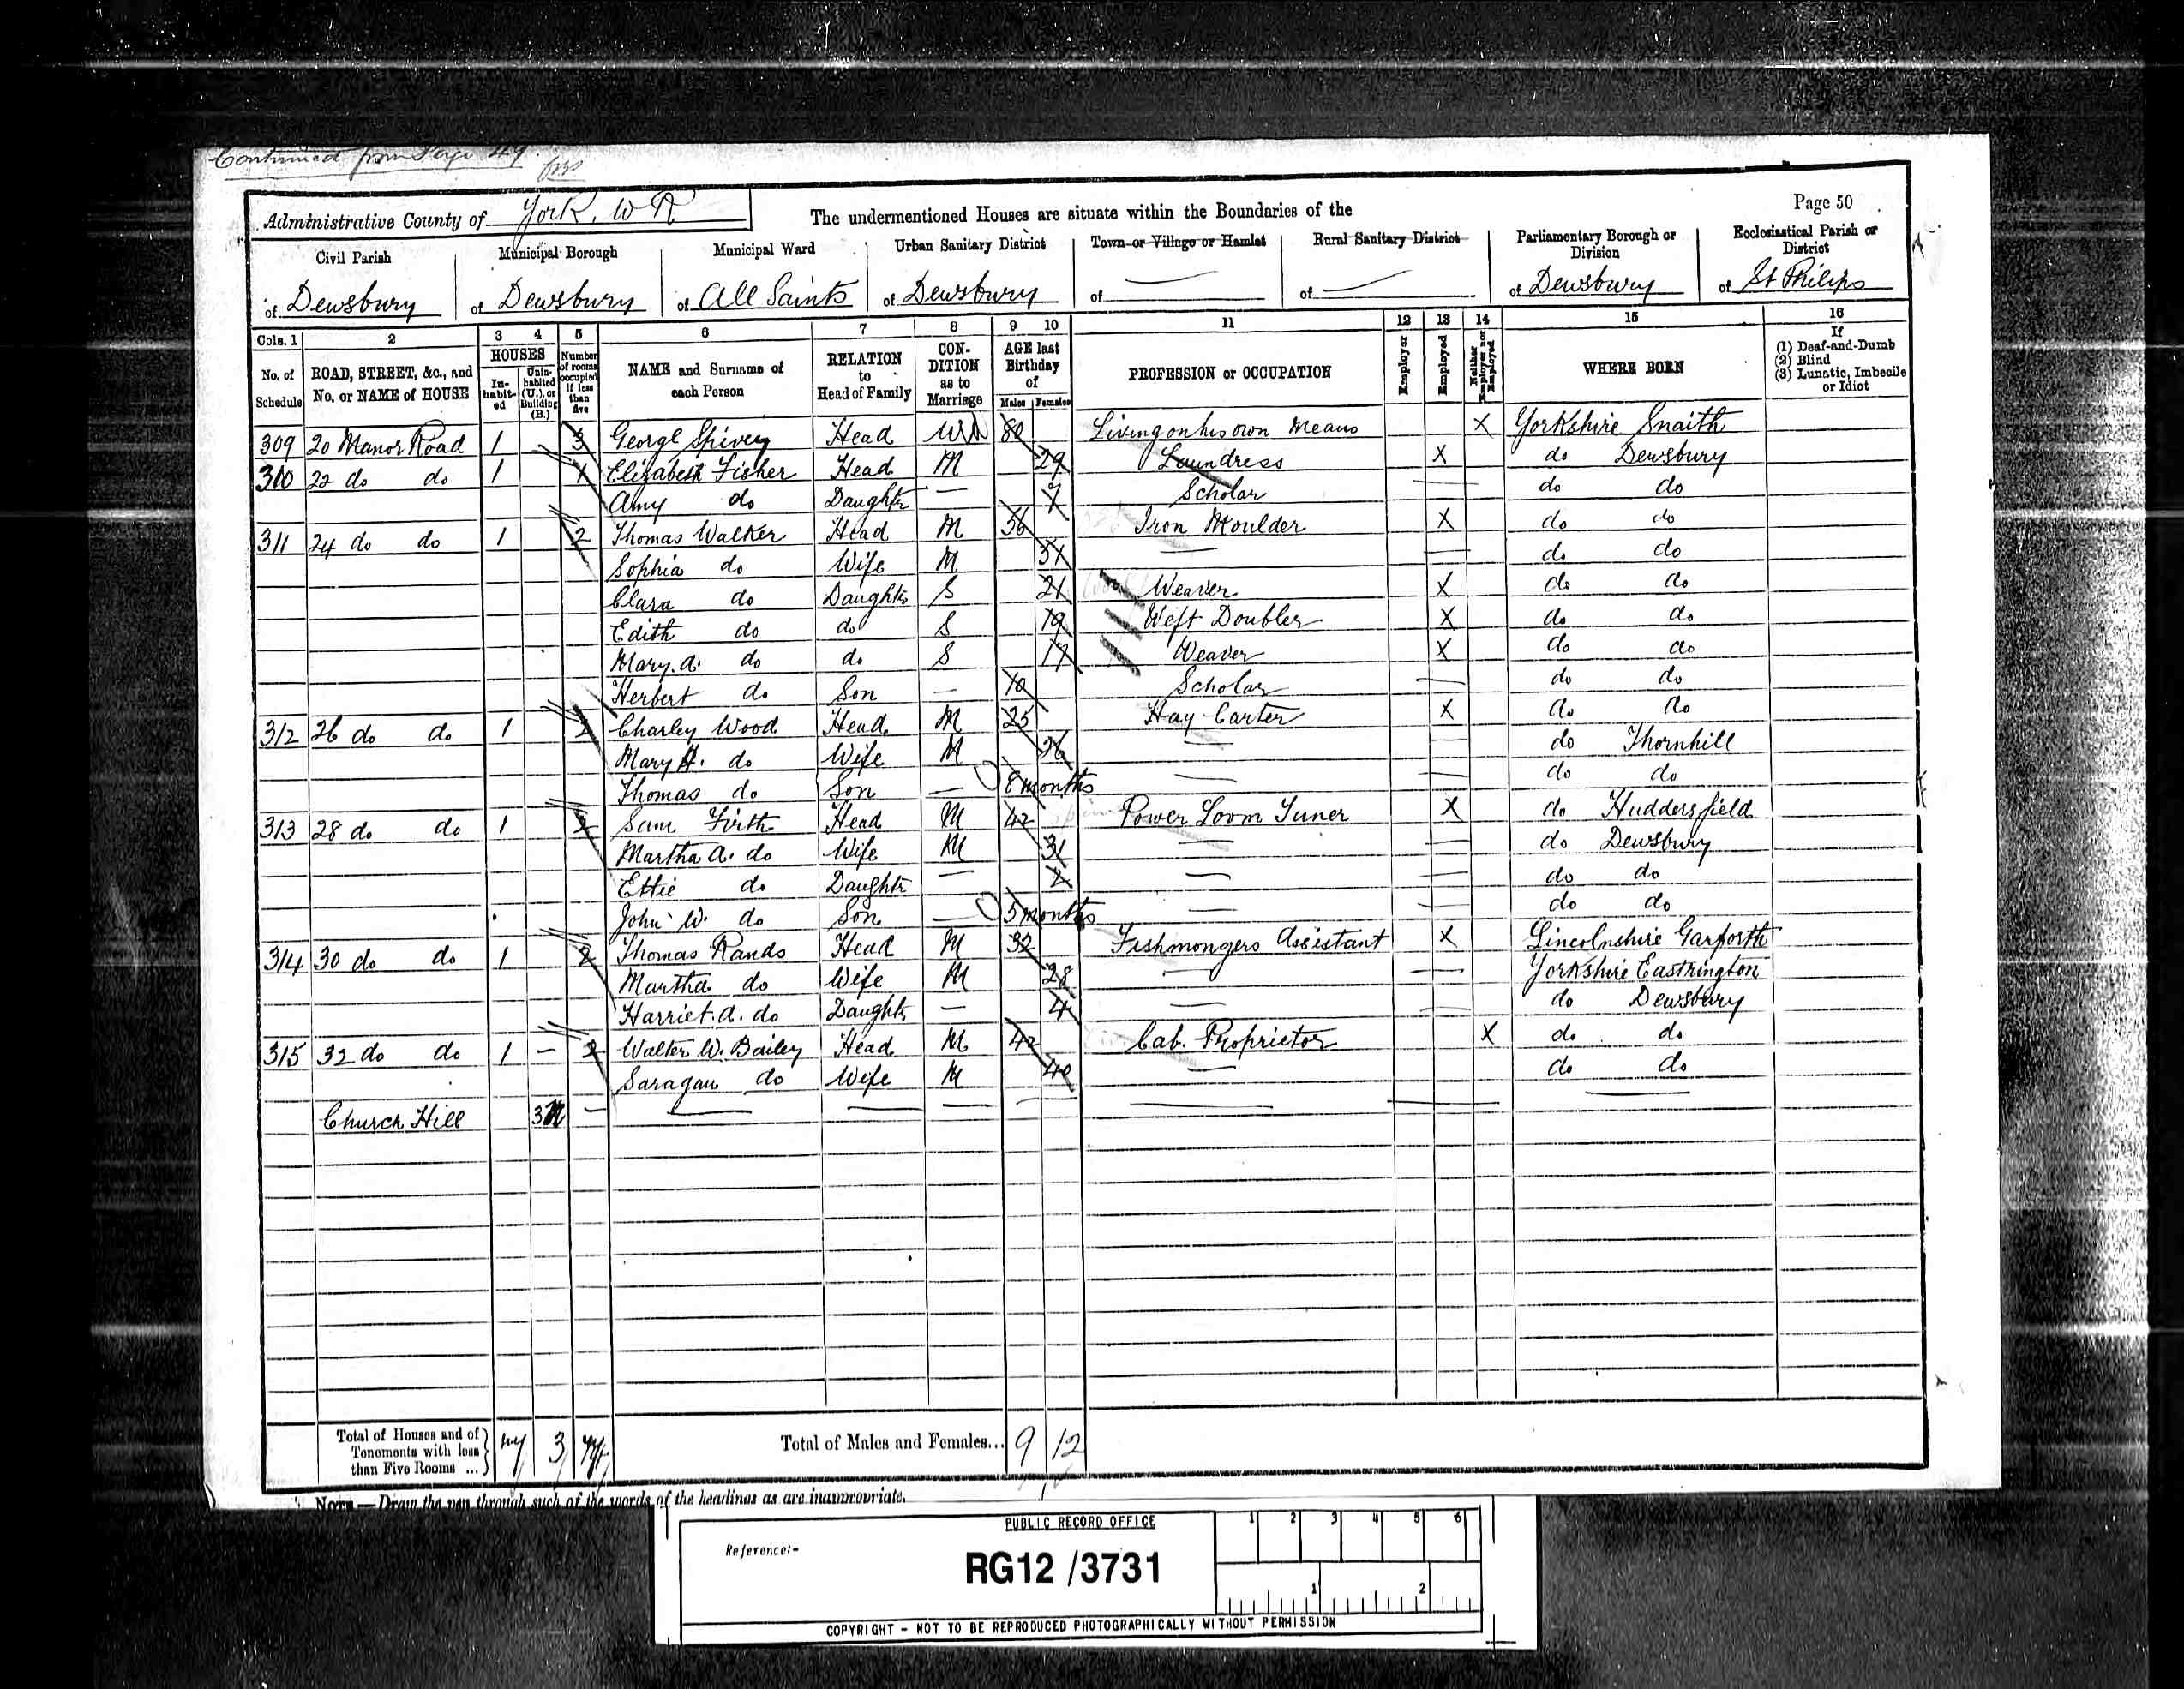 Continued from Page 49.
Administrative County of York. W R
The undermentioned Houses are situate within the Boundaries of the
Page 50
Civil Parish of Dewsbury
Municipal Borough of Dewsbury
Municipal Ward of All Saints
Urban Sanitary District of Dewsbury
Town or Village or Hamlet of —
Rural Sanitary District of —
Parliamentary Borough or Division of Dewsbury
Ecclesiastical Parish or District of St Philips
Cols. 1 2 3 4 5 6 7 8 9 10 11 12 13 14 15 16
No. of Schedule
ROAD, STREET, &c., and No. or NAME of HOUSE
HOUSES
In-habit-ed
Unin-habited (U.), or Building (B.)
Number of rooms occupied if less than five
NAME and Surname of each Person
RELATION to Head of Family
CON-DITION as to Marriage
AGE last Birthday of
Males Females
PROFESSION or OCCUPATION
Employer
Employed
Neither Employer nor Employed
WHERE BORN
If (1) Deaf-and-Dumb (2) Blind (3) Lunatic, Imbecile or Idiot
309 20 Manor Road 1 3 George Spivey Head Wid 80 Living on his own Means X Yorkshire Snaith
310 22 do do 1 Elizabeth Fisher Head M 29 Laundress X do Dewsbury
Amy do Daughtr — 7 Scholar — do do
311 24 do do 1 2 Thomas Walker Head M 56 Iron Moulder X do do
Sophia do Wife M 51 — — do do
Clara do Daughtr S 21 Weaver X do do
Edith do do S 19 Weft Doubler X do do
Mary. A. do do S 17 Weaver X do do
Herbert do Son — 10 Scholar — do do
312 26 do do 1 Charley Wood Head M 25 Hay Carter X do do
Mary H. do Wife M 26 — — do Thornhill
Thomas do Son — 8 months — — do do
313 28 do do 1 Sam Firth Head M 42 Power Loom Tuner X do Huddersfield
Martha A. do Wife M 31 — — do Dewsbury
Ettie do Daughtr — 2 — — do do
John W. do Son — 5 months — — do do
314 30 do do 1 2 Thomas Rands Head M 32 Fishmongers Assistant X Lincolnshire Garforth
Martha do Wife M 28 — — Yorkshire Eastrington
Harriet. A. do Daughtr — 4 — — do Dewsbury
315 32 do do 1 — 2 Walter W. Bailey Head M 42 Cab. Proprietor X do do
Saragan do Wife M 40 — do do
Church Hill 3 U — — — — — — — —
Total of Houses and of Tenements with less than Five Rooms ... 7 3 7
Total of Males and Females... 9 12
NOTE.—Draw the pen through such of the words of the headings as are inappropriate.
PUBLIC RECORD OFFICE
Reference:-
RG12 /3731
1 2 3 4 5 6
1 2
COPYRIGHT - NOT TO BE REPRODUCED PHOTOGRAPHICALLY WITHOUT PERMISSION